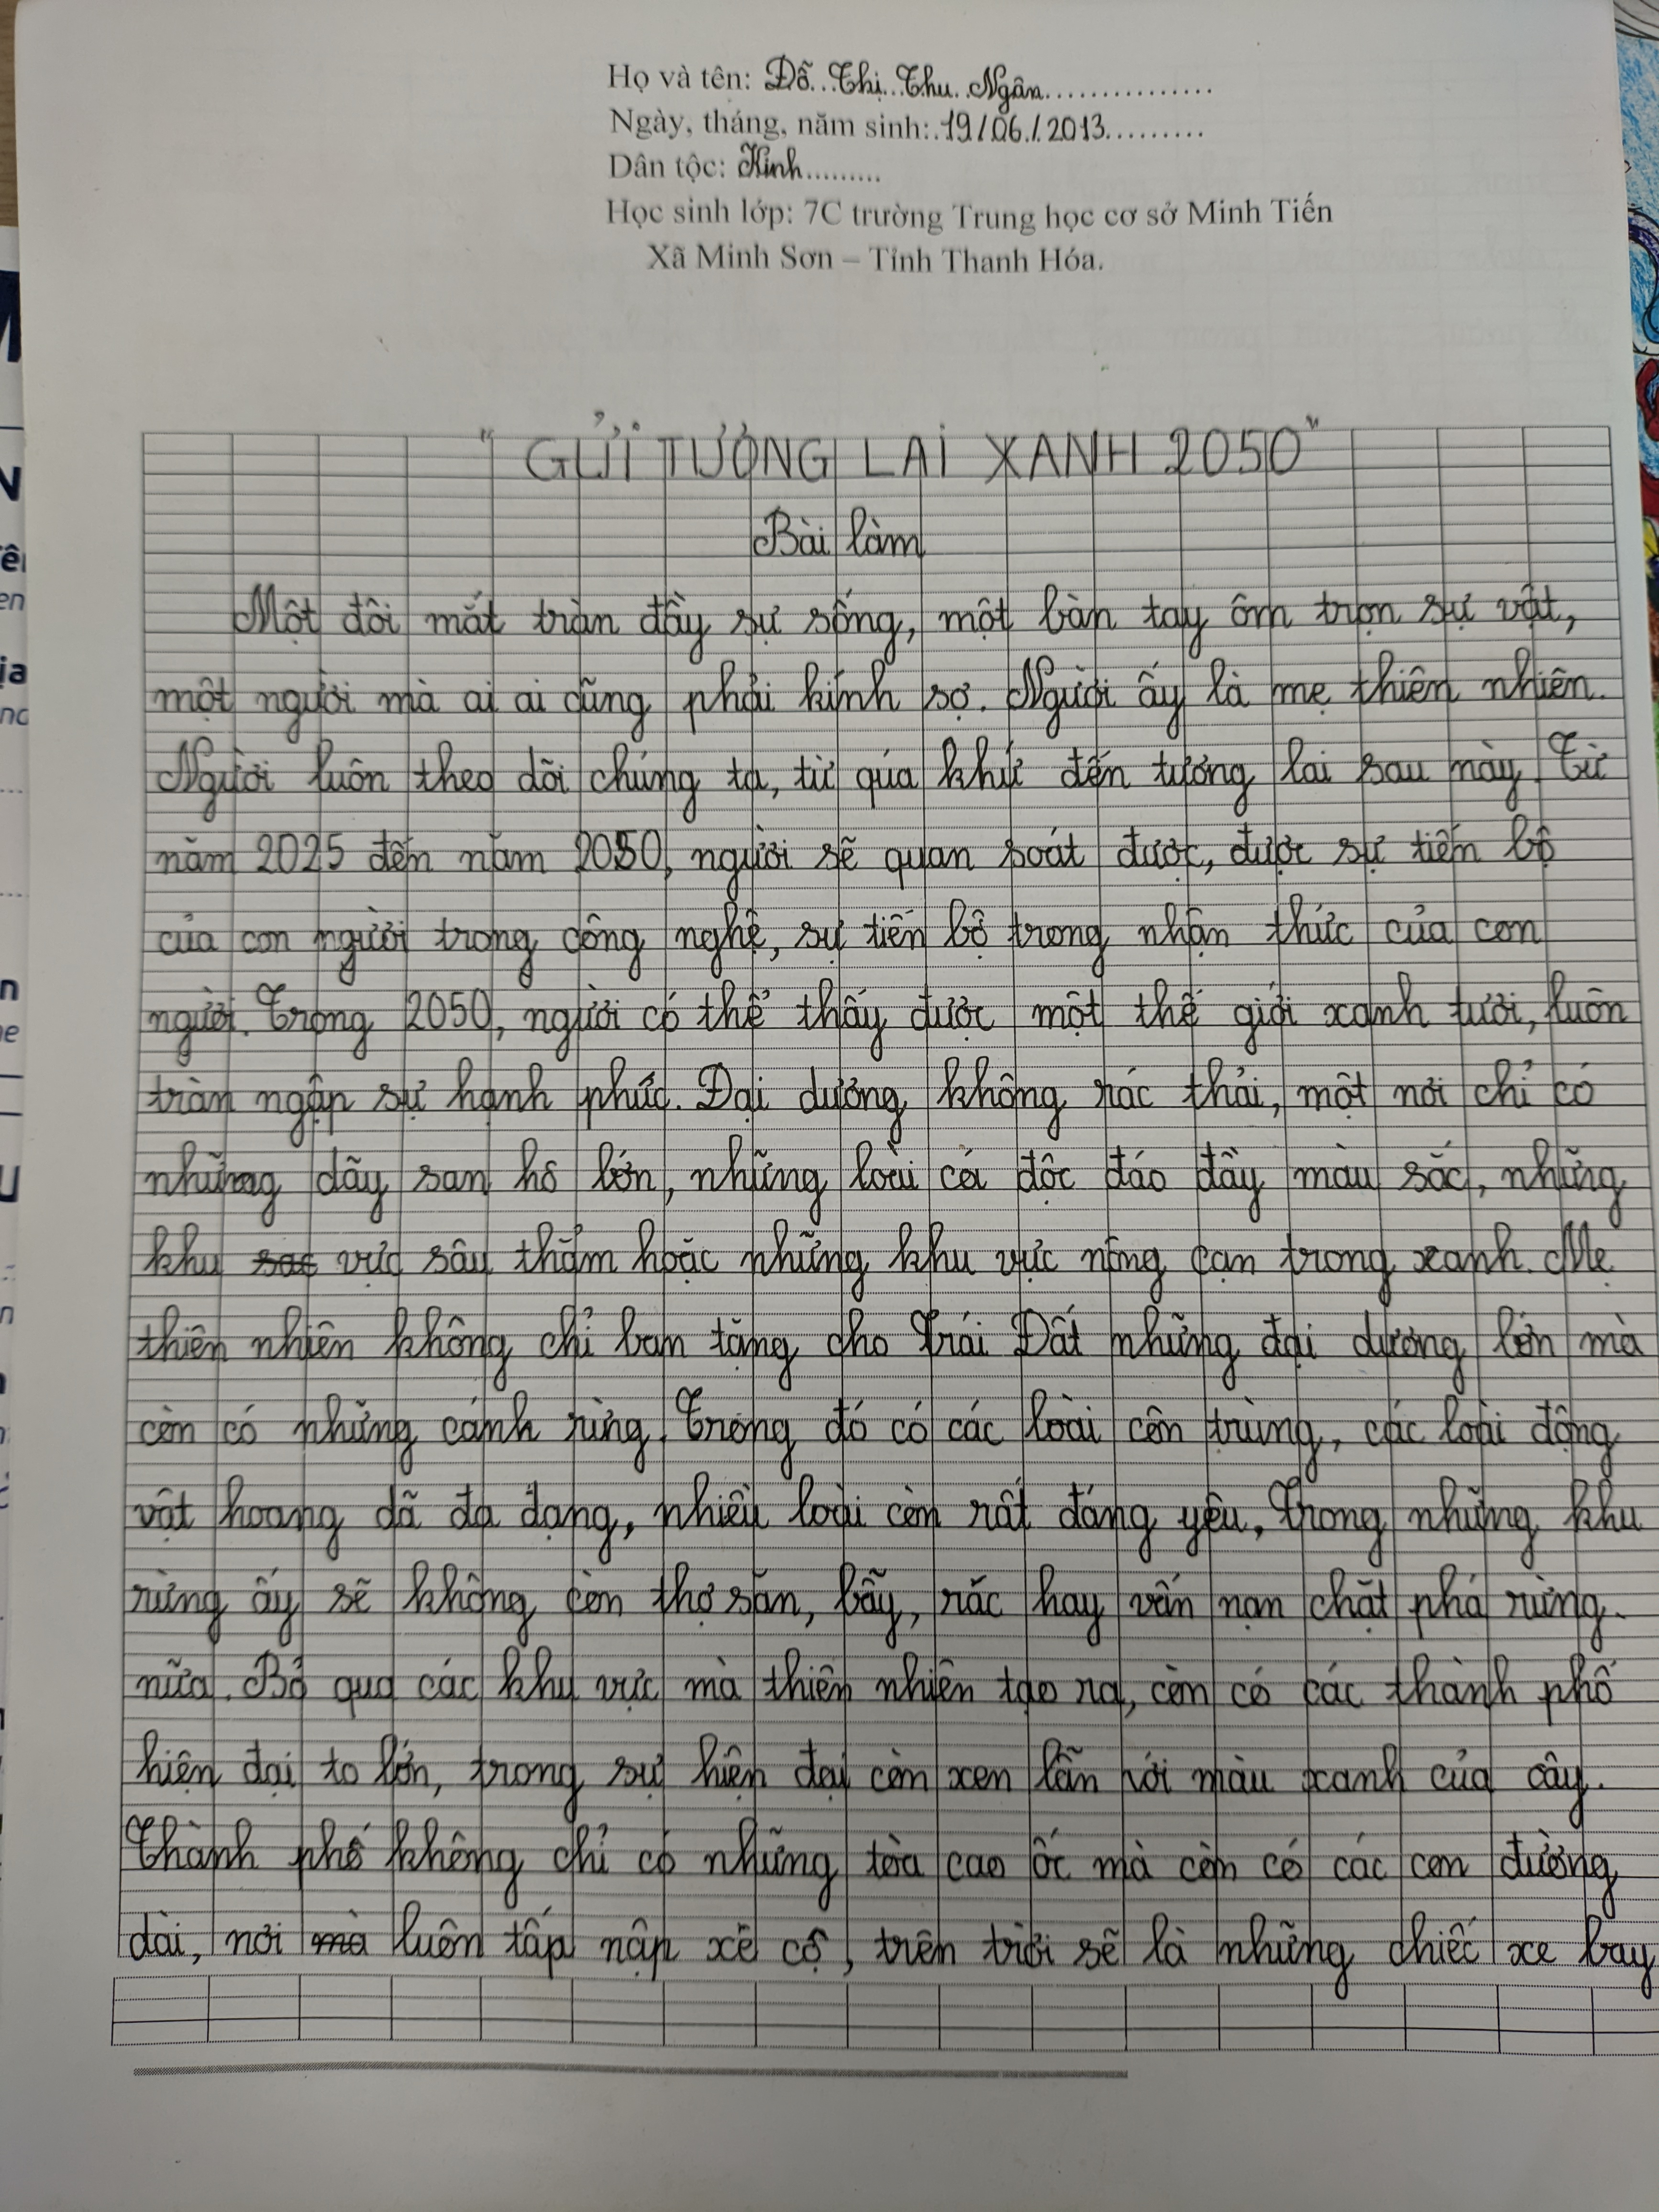 Họ và tên: Đỗ Thị Thu Ngân
Ngày, tháng, năm sinh: 19/06/2013
Dân tộc: Kinh
Học sinh lớp: 7C trường Trung học cơ sở Minh Tiến
Xã Minh Sơn – Tỉnh Thanh Hóa.
"GỬI TƯƠNG LAI XANH 2050"
Bài làm
Một đôi mắt tràn đầy sự sống, một bàn tay ôm trọn sự vật,
một người mà ai ai cũng phải kính sợ. Người ấy là mẹ thiên nhiên.
Người luôn theo dõi chúng ta, từ qúa khứ đến tương lai sau này. Từ
năm 2025 đến năm 2050, người sẽ quan soát được, được sự tiến bộ
của con người trong công nghệ, sự tiến bộ trong nhận thức của con
người. Trong 2050, người có thể thấy được một thế giới xanh tươi, luôn
tràn ngập sự hạnh phúc. Đại dương không rác thải, một nơi chỉ có
những dãy san hô lớn, những loài cá độc đáo đầy màu sắc, những
khu vực sâu thẳm hoặc những khu vực nông cạn trong xanh. Mẹ
thiên nhiên không chỉ ban tặng cho Trái Đất những đại dương lớn mà
còn có những cánh rừng. Trong đó có các loài côn trùng, các loài động
vật hoang dã đa dạng, nhiều loài còn rất đáng yêu, Trong những khu
rừng ấy sẽ không còn thợ săn, bẫy, rác hay vấn nạn chặt phá rừng.
nữa. Bỏ qua các khu vực mà thiên nhiên tạo ra, còn có các thành phố
hiện đại to lớn, trong sự hiện đại còn xen lẫn với màu xanh của cây.
Thành phố không chỉ có những tòa cao ốc mà còn có các con đường
dài, nơi luôn tấp nập xe cộ, trên trời sẽ là những chiếc xe bay